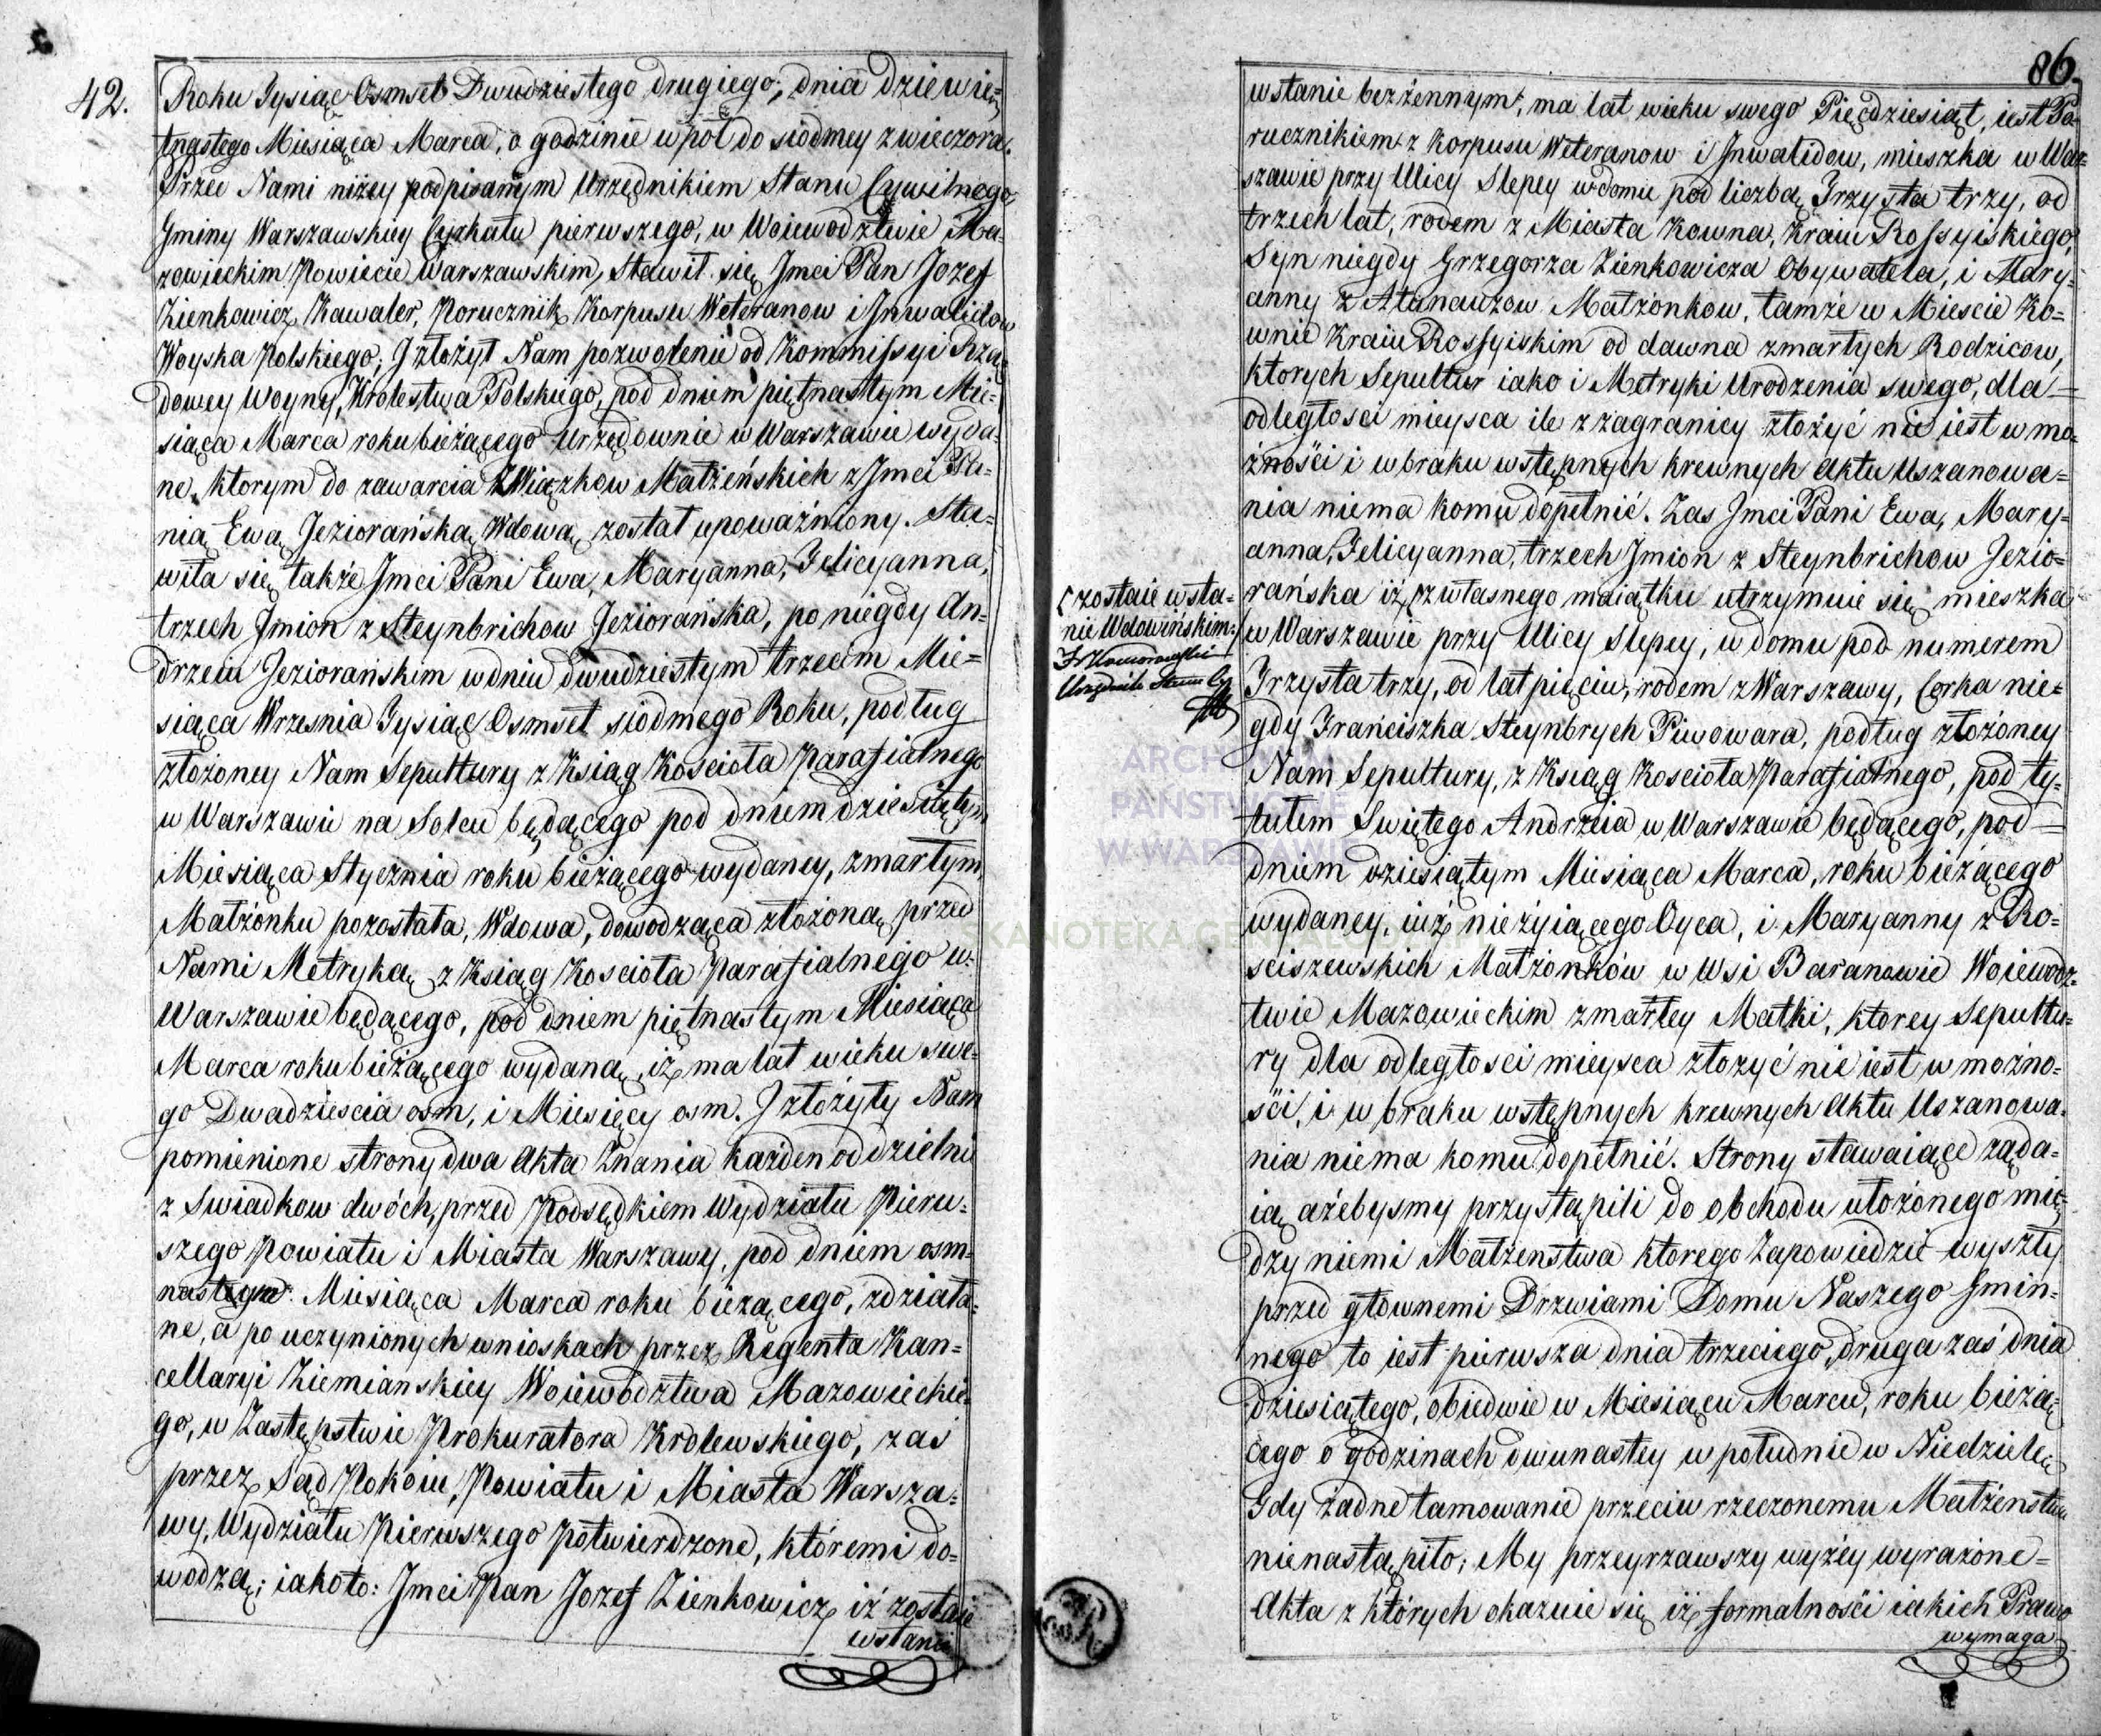 42.
Roku Tysiąc Osmset Dwudziestego drugiego; dnia dziewię=
tnastego Miesiąca Marca, o godzinie w pół do siodmey z wieczora.
Przed Nami niżey podpisanym Urzędnikiem Stanu Cywilnego
Gminy Warszawskiey Cyrkułu pierwszego, w Woiewodztwie Ma=
zowieckim Powiecie Warszawskim, Stawił się Jmci Pan Jozef
Zienkowicz, Kawaler, Porucznik Korpusu Weteranow i Jnwalidow
Woyska Polskiego; J złożył Nam pozwolenie od Kommissyi Rzą=
dowey Woyny, Krolestwa Polskiego, pod dniem piętnastym Mie=
siąca Marca roku bieżącego Urzędownie w Warszawie wyda=
ne, ktorym do zawarcia Związkow Małżeńskich z Jmci Pa=
nią Ewą Jeziorańską, Wdową, został upoważniony. Sta=
wiła się także Jmci Pani Ewa, Maryanna, Felicyanna,
trzech Jmion z Steynbrichow Jeziorańska, po niegdy An=
drzeiu Jeziorańskim w dniu dwudziestym trzecim Mie=
siąca Wrzesnia Tysiąc Osmset siodmego Roku, podług
złożoney Nam Sepultury z Ksiąg Kościoła Parafialnego
w Warszawie na Solcu będącego pod dniem dziesiątym
Miesiąca Stycznia roku bieżącego wydaney, zmarłym
Małżonku pozostała, Wdowa, dowodząca złożoną przed
Nami Metryką z Ksiąg Kościoła Parafialnego w
Warszawie będącego, pod dniem piętnastym Miesiąca
Marca roku bieżącego wydaną, iż ma lat wieku swe=
go Dwadziescia osm, i Miesięcy osm. J złożyły Nam
pomienione strony dwa Akta Znania każden oddzielnie
z Swiadkow dwóch, przed Podsędkiem Wydziału Pierw=
szego Powiatu i Miasta Warszawy, pod dniem osm=
nastym Miesiąca Marca roku bieżącego, zdziała=
ne, a po uczynionych wnioskach przez Regenta Kan=
cellaryi Ziemianskiey Woiewodztwa Mazowieckie=
go, w Zastępstwie Prokuratora Krolewskiego, zaś
przez Sąd Pokoiu, Powiatu i Miasta Warsza=
wy, Wydziału Pierwszego Potwierdzone, któremi do=
wodzą; iakoto: Jmci Pan Jozef Zienkowicz iż zostaie
w stanie
86.
w stanie bezżennym, ma lat wieku swego Pięćdziesiąt, iest Po=
rucznikiem z Korpusu Weteranow i Jnwalidow, mieszka w War=
szawie przy Ulicy Slepey w domie pod liczbą Trzysta trzy, od
trzech lat, rodem z Miasta Kowna, Kraiu Rossyiskiego,
Syn niegdy Grzegorza Zienkowicza Obywatela, i Mary=
anny z Małżonkow, tamże w Miescie Ko=
wnie Kraiu Rossyiskim od dawna zmarłych Rodzicow,
ktorych Sepultur iako i Metryki Urodzenia swego, dla=
odległosci mieysca ile z zagranicy złożyć nie iest w mo=
żności i w braku wstępnych krewnych Aktu Uszanowa=
nia niema komu dopełnić. Zas Jmci Pani Ewa, Mary=
anna, Felicyanna, trzech Jmion z Steynbrichow Jezio=
rańska iż z własnego maiątku utrzymuie się mieszka
w Warszawie przy Ulicy Slepey, w domu pod numerem
Trzysta trzy, od lat pięciu, rodem z Warszawy, Corka nie=
gdy Franciszka Steynbrych Piwowara, podług złożoney
Nam Sepultury, z Ksiąg Kościoła Parafialnego, pod ty=
tułem Swiętego Andrzeia w Warszawie będącego, pod=
dniem dziesiątym Miesiąca Marca, roku bieżącego
wydaney, iuż nieżyiącego Oyca, i Maryanny z Ro=
sciszewskich Małżonków w Wsi Baranowie Woiewodz=
twie Mazowieckim zmarłey Matki, ktorey Sepultu=
ry dla odległosci mieysca złożyć nie iest w możno=
ści, i w braku wstępnych krewnych Aktu Uszanowa=
nia niema komu dopełnić. Strony stawaiące żąda=
ią ażebysmy przystąpili do obchodu ułożonego mię=
dzy niemi Małżenstwa ktorego Zapowiedzie wyszły
przed głownemi Drzwiami Domu Naszego Gmin=
nego to iest pierwsza dnia trzeciego, druga zaś dnia
dziesiątego, obiedwie w Miesiącu Marcu, roku bieżą=
cego o godzinach dwunastey w południe w Niedziele
Gdy żadne tamowanie przeciw rzeczonemu Małżenstwu
nienastąpiło; My przeyrzawszy wyżey wyrażone=
Akta z których okazuie się iż formalności iakich Prawo
wymaga
zostaie w sta=
nie Wdowińskim.
Urzędnik Stanu Cy
ARCHIWUM
PAŃSTWOWE
W WARSZAWIE
SKANOTEKA.GENEALODZY.PL